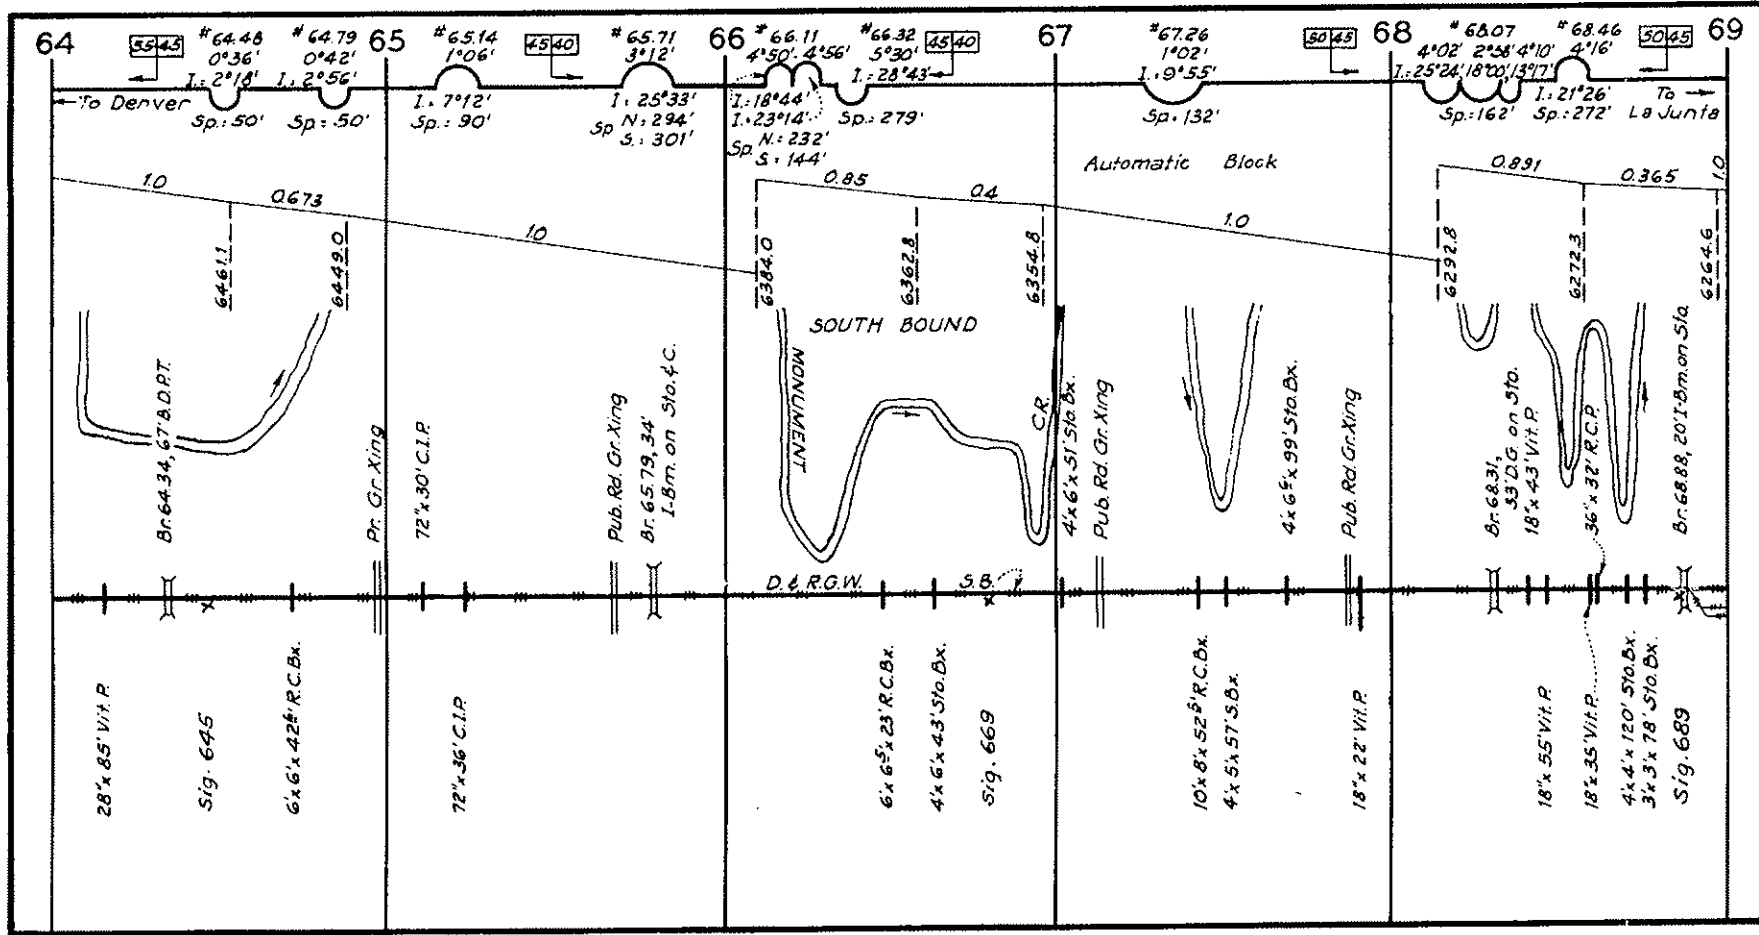 64 65 66 67 68 69
55 45
#64.48
0°36'
I.: 2°18'
Sp.: 50'
#64.79
0°42'
I.: 2°56'
Sp.: 50'
#65.14
1°06'
I.: 7°12'
Sp.: 90'
45 40
#65.71
3°12'
I.: 25°33'
Sp. N.: 294'
S.: 301'
#66.11
4°50'. 4°56'
I.: 18°44'
I.: 23°14'
Sp. N.: 232'
S.: 144'
#66.32
5°30'
I.: 28°43'
Sp.: 279'
45 40
#67.26
1°02'
I.: 9°55'
Sp.: 132'
50 45
#68.07
4°02' 2°38' 4°10'
I.: 25°24' 18°00' 13°17'
Sp.: 162'
#68.46
4°16'
I.: 21°26'
Sp.: 272'
50 45
To Denver
To
La Junta
Automatic Block
1.0
0.673
1.0
0.85
0.4
1.0
0.891
0.365
1.0
6461.1
6449.0
6384.0
6362.8
6354.8
6292.8
6272.3
6264.6
SOUTH BOUND
MONUMENT
CR.
Br. 64.34, 67' B.D.P.T.
Pr. Gr. Xing
72" x 30' C.I.P.
Pub. Rd. Gr. Xing
Br. 65.79, 34'
I-Bm. on Sto. & C.
4' x 6' x 51' Sto. Bx.
Pub. Rd. Gr. Xing
4' x 6⁶' x 99' Sto. Bx.
Pub. Rd. Gr. Xing
Br. 68.31,
33' D.G. on Sto.
18" x 43' Vit. P.
36" x 32' R.C.P.
Br. 68.88, 20' I-Bm. on Sto.
D. & R.G.W.
S.B.
28" x 85' Vit. P.
Sig. 645
6' x 6' x 42' R.C. Bx.
72" x 36' C.I.P.
6' x 6⁵' x 23' R.C. Bx.
4' x 6' x 43' Sto. Bx.
Sig. 669
10' x 8' x 52' R.C. Bx.
4' x 5' x 57' S. Bx.
18" x 22' Vit. P.
18" x 55' Vit. P.
18" x 35' Vit. P.
4' x 4' x 120' Sto. Bx.
3' x 3' x 78' Sto. Bx.
Sig. 689